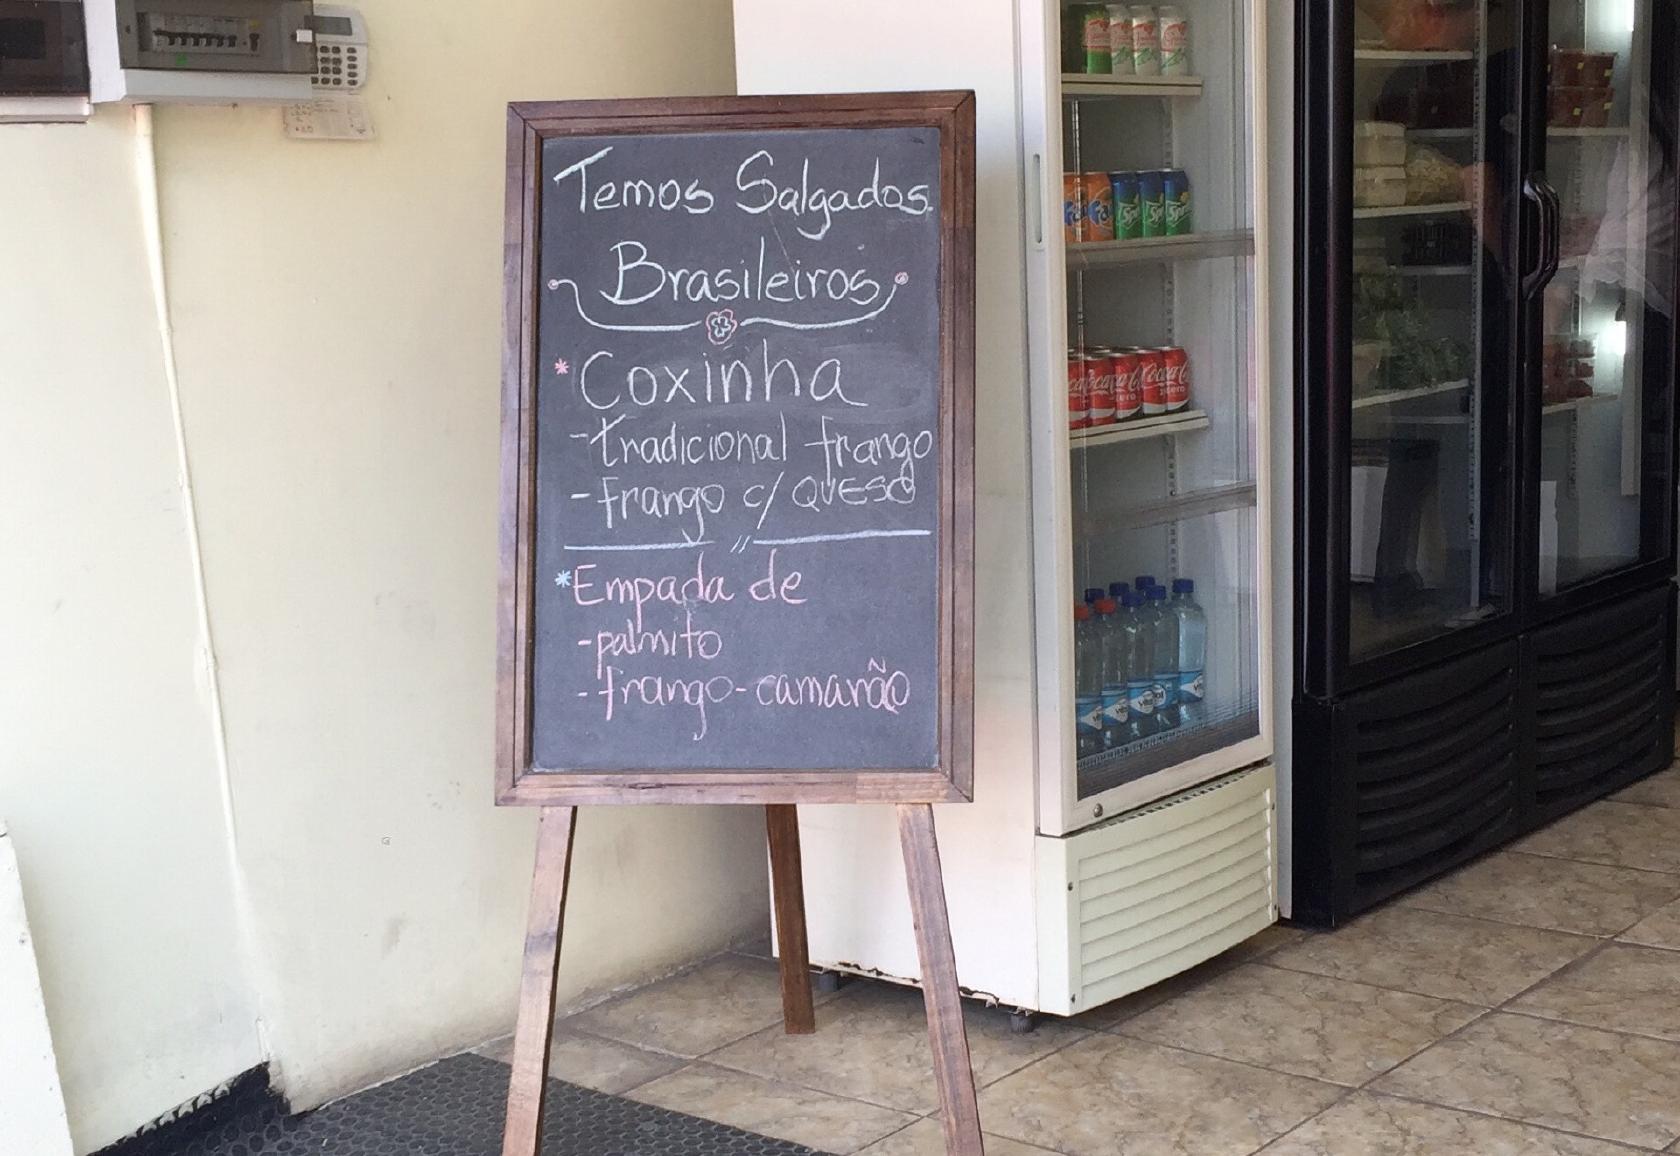 Temos Salgados
Brasileiros
* Coxinha
- tradicional frango
- frango c/ QUESO
*Empada de
- palmito
- frango - camarão
Fanta
Sprite
Coca-Cola
zero